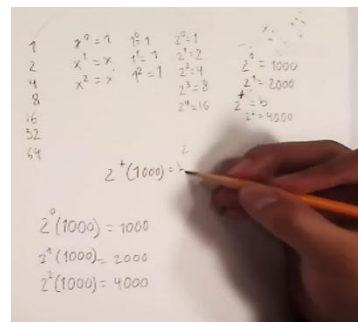 1
2
4
8
16
32
64
x⁰ = 1
x¹ = x
x² = x
1⁰ = 1
1¹ = 1
1² = 1
2⁰ = 1
2¹ = 2
2² = 4
2³ = 8
2⁴ = 16
2⁰ = 1000
2¹ = 2000
2ᵗ = b
2² = 4000
2
2ᵗ(1000) =
2⁰(1000) = 1000
2¹(1000) = 2000
2²(1000) = 4000